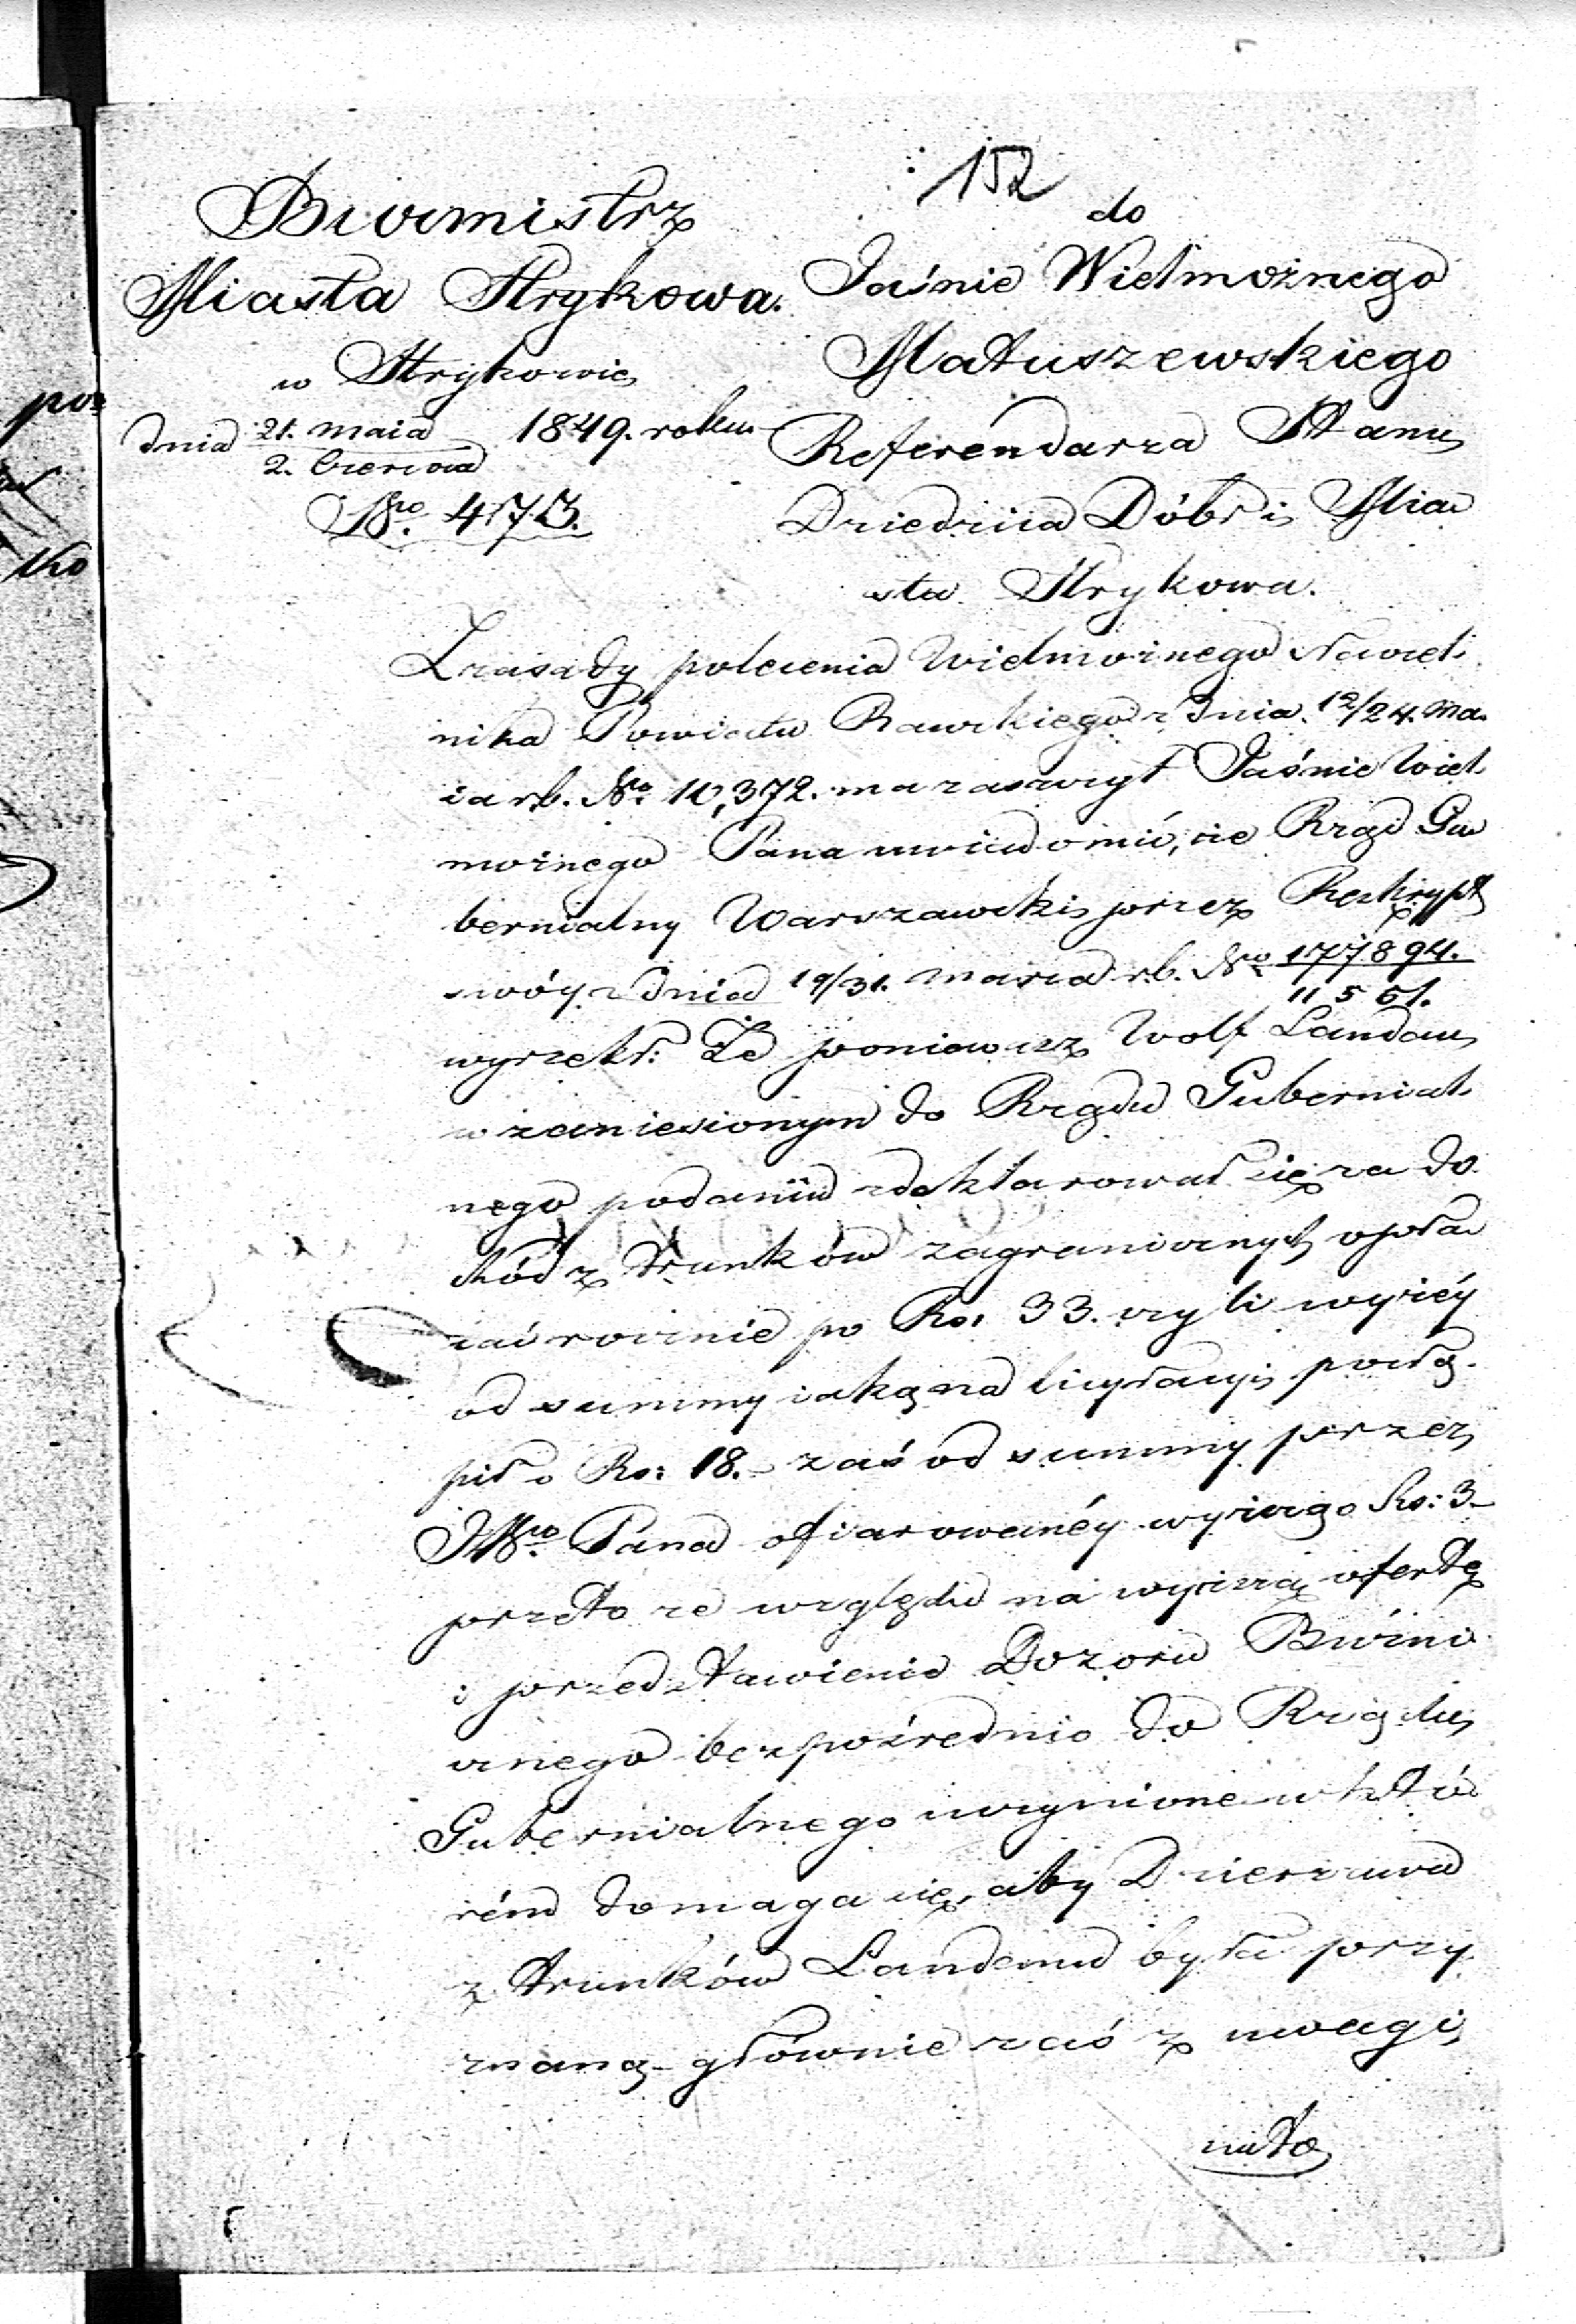 152
Burmistrz
Miasta Strykowa.
w Strykowie
dnia 21. maia / 2. Czerwca 1849. roku
Nro 473.
do
Jaśnie Wielmożnego
Matuszewskiego
Referendarza Stanu
Dziedzica Dóbr i Mia
sta Strykowa.
Z zasady polecenia Wielmożnego Naczel
nika Powiatu Rawskiego z dnia 12/24. Ma
ia rb. No 10,372. ma zaszczyt Jaśnie Wiel
możnego Pana uwiadomić, że Rząd Gu
bernialny Warszawski przez Reskrypt
swóy z dnia 19/31. marca rb. No 177894. / 11551.
wyrzekł: Że ponieważ Wolf Landau
w zaniesionym do Rządu Gubernial
nego podaniu zdeklarował się za do
chód z trunków zagranicznych opła
cać rocznie po Rs. 33. czyli wyżéy
od summy iaką na licytacyi postą
pił o Rs: 18. zaś od summy przez
JWgo Pana ofiarowanéy wyższego Rs: 3
przeto ze względu na wyższą ofertę
i przedstawienie Dozoru Bóżni
cznego bezpośrednio do Rządu
Gubernialnego uczynione w któ
rém domaga się, aby Dzierzawa
z trunków Landemu była przy
znaną głównie zaś z uwagi
na to
por
tko